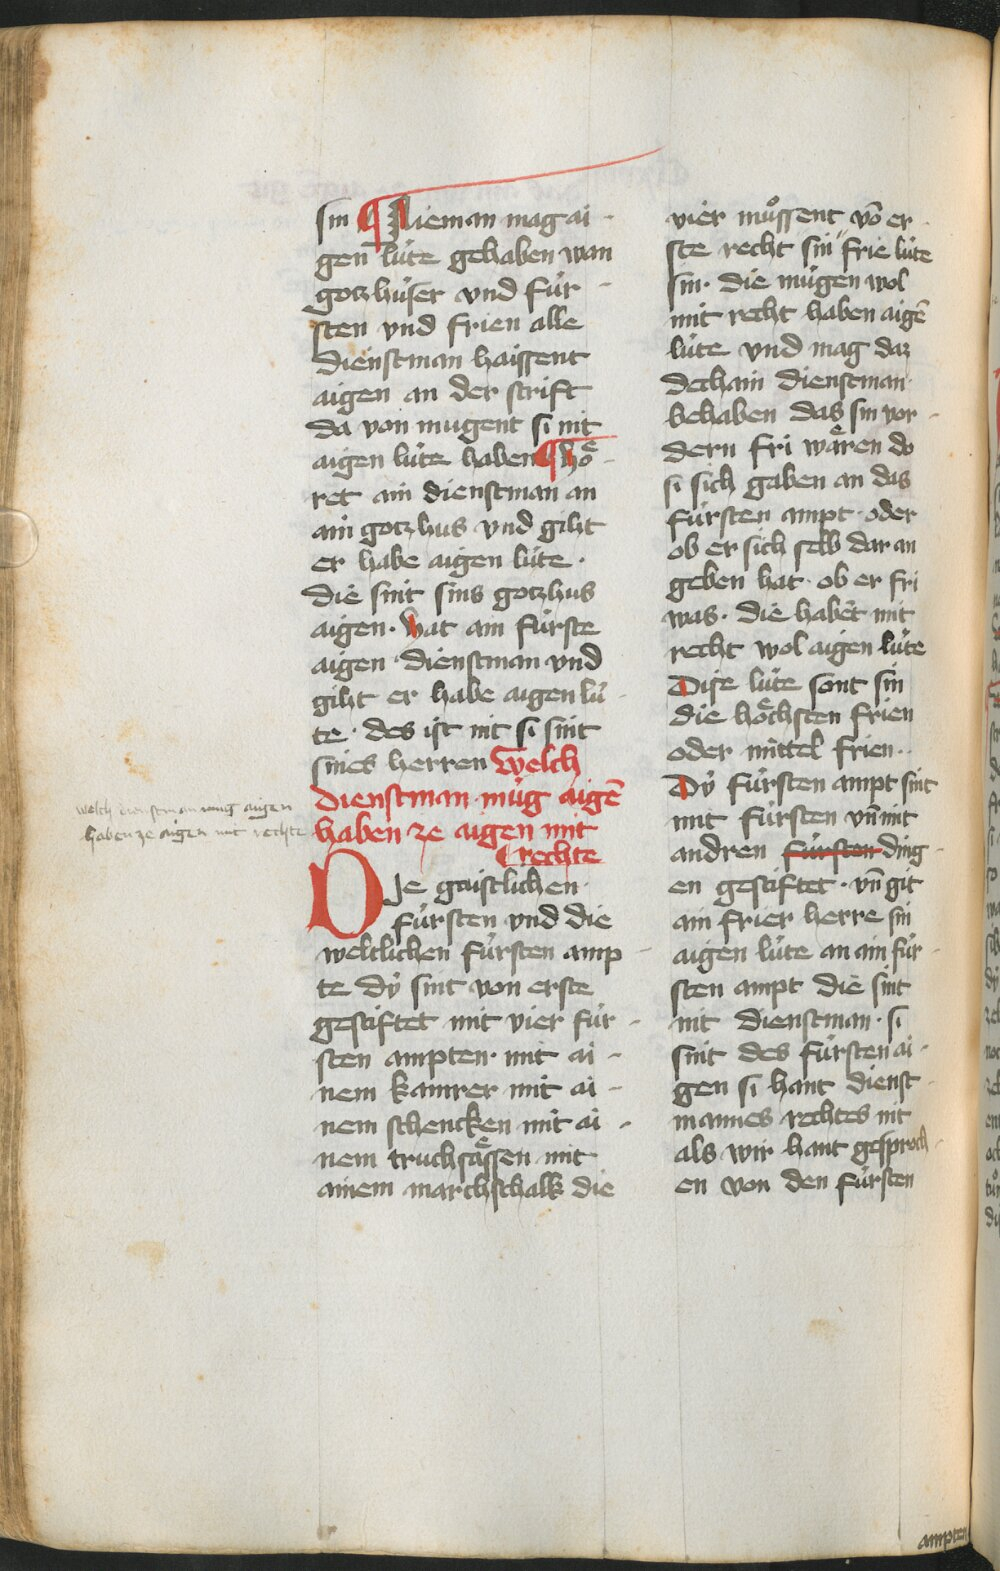 sin ¶ Nieman mag ai-
gen lüte gehaben wan
gotzhüser vnd für-
sten vnd frien alle
dienstman haissent
aigen an der scrift
da von mugent si nit
aigen lüte haben ¶ Hoͤ-
ret ain dienstman an
ain gotzhus vnd giht
er habe aigen lüte ·
die sint sins gotzhus
aigen · hat ain fürste
aigen dienstman vnd
giht er habe aigen lü-
te · des ist nit si sint
sines herren Welch
dienstman müg aigē
haben ze aigen mit
rechte
welch dienstman mug aigen
haben ze aigen mit rechte
DJe gaistlichen
fürsten vnd die
weltlichen fürsten amp-
te dÿ sint von erste
gestiftet mit vier für-
sten ampten · mit ai-
nem kamrer mit ai-
nem schencken mit ai-
nem truchsaͤssen mit
ainem marchschalk die
vier muͦssent vō er-
ste recht sin frie lüte
sin · die mügen wol
mit recht haben aigē
lüte vnd mag daz
dechain dienstman
behaben das sin vor-
dern fri waͤren do
si sich gaben an das
fürsten ampt · oder
ob er sich selb dar an
geben hat · ob er fri
was · die habēt mit
recht wol aigen lüte
Dise lüte sont sin
die hoͤchsten frien
oder mittel frien ·
Dÿ fürsten ampt sint
mit fürsten vn̄ mit
andren fürsten ding-
en gestiftet · vn̄ git
ain frier herre sin
aigen lüte an ain für-
sten ampt die sint
nit dienstman · si
sint des fürsten ai-
gen si hant dienst-
mannes rechtes nit
als wir hant gesproch-
en von den fürsten
ampten